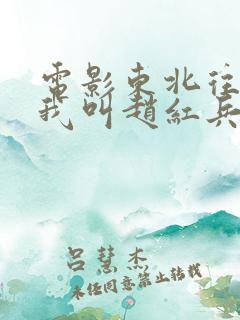 電影東北往
我叫趙紅兵
呂慧杰
未经同意禁止转载